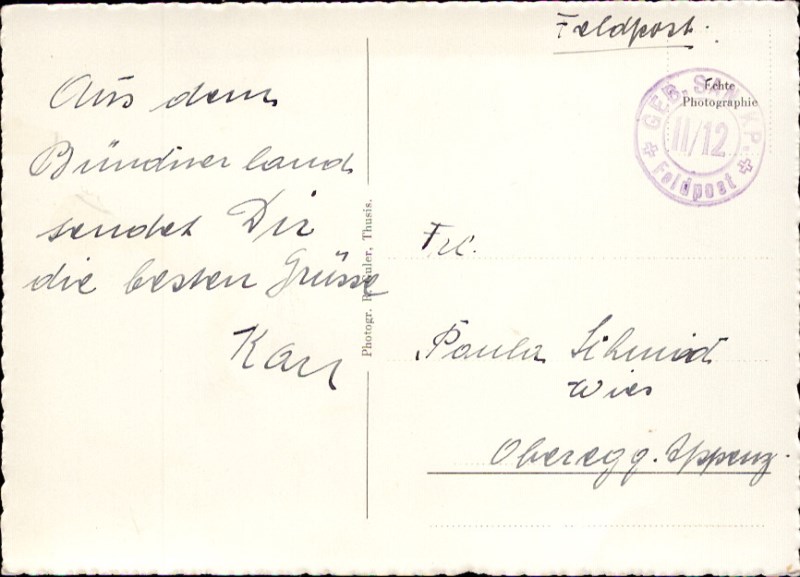 Feldpost.
Echte
Photographie
GEB. SAN. KP.
II/12
Feldpost
Aus dem
Bündnerland
sendet Dir
die besten Grüsse
Karl
Photogr. Thusis.
Frl.
Paula Schmid
Wies
Oberegg. Appenz.